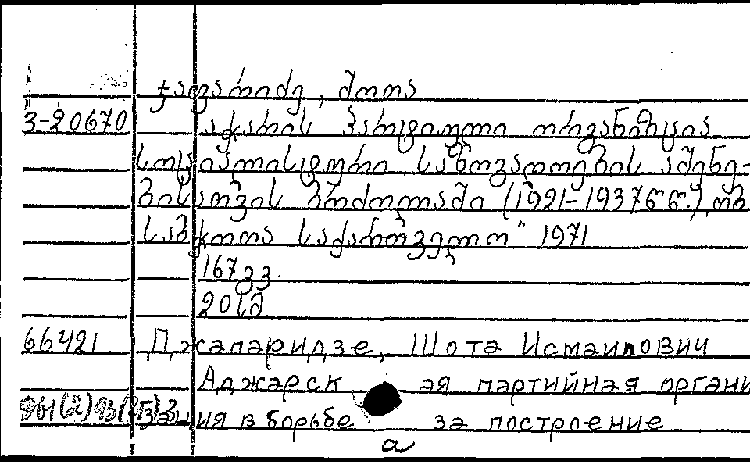 ჯაფარიძე, შოთა
3-20670 აჭარის პარტიული ორგანიზაცია
სოციალისტური საზოგადოების აშენე-
ბისათვის ბრძოლაში (1921-1937წწ.) თბ
საბჭოთა საქართველო" 1971
167გვ
20სმ
66421 Джапаридзе, Шота Исмаилович
Аджарск ая партийная органи
зация в борьбе за построение
а